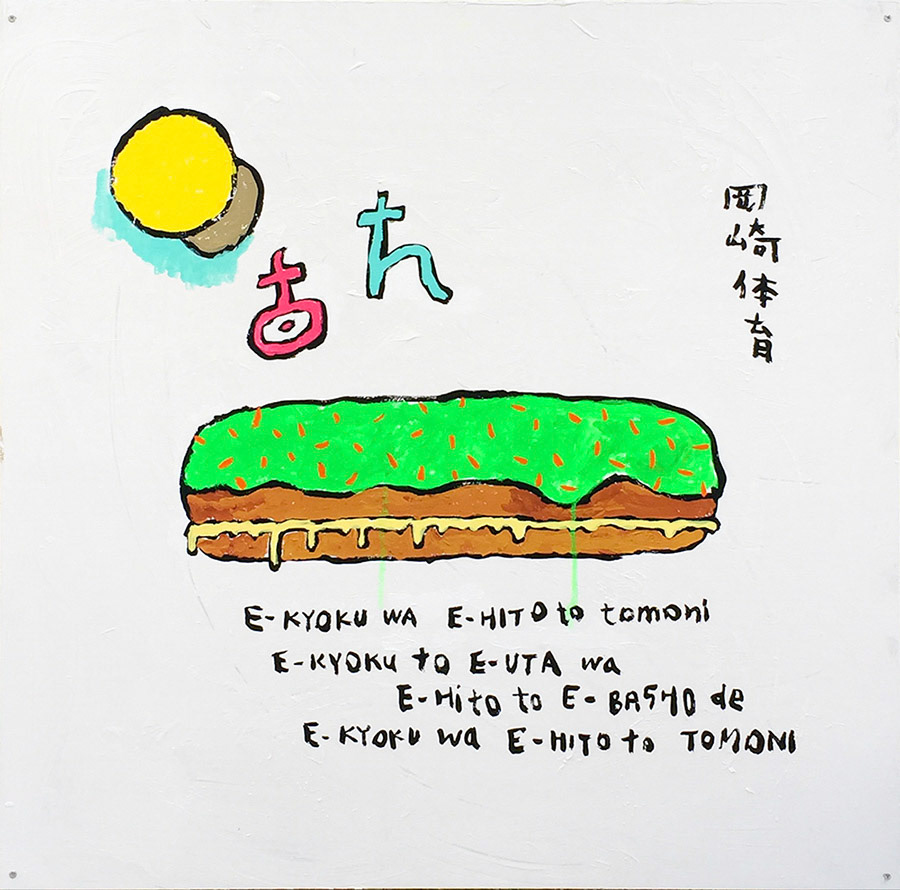 岡崎体育
E-KYOKU WA E-HITO to tomoni
E-KYOKU to E-UTA wa
E-Hito to E-BASHO de
E-KYOKU wa E-HITO to TOMONI